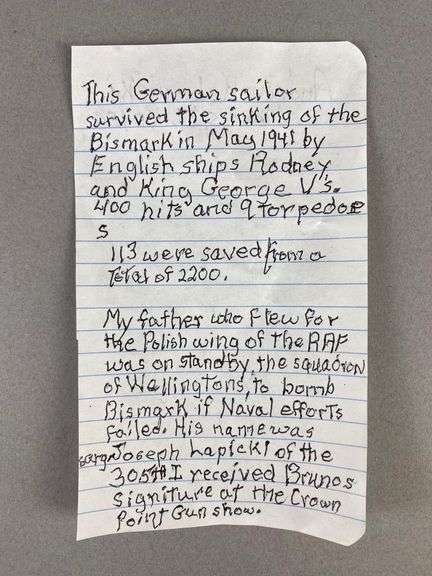 This German sailor
survived the sinking of the
Bismark in May 1941 by
English ships Rodney
and King George V's.
400 hits and 9 torpedoe
s
113 were saved from a
total of 2200.
My father who flew for
the Polish wing of the RAF
was on standby, the squadron
of Wellingtons, to bomb
Bismark if Naval efforts
failed. His name was
Joseph Lapicki of the
305th I received Brunos
signiture at the Crown
Point Gun show.